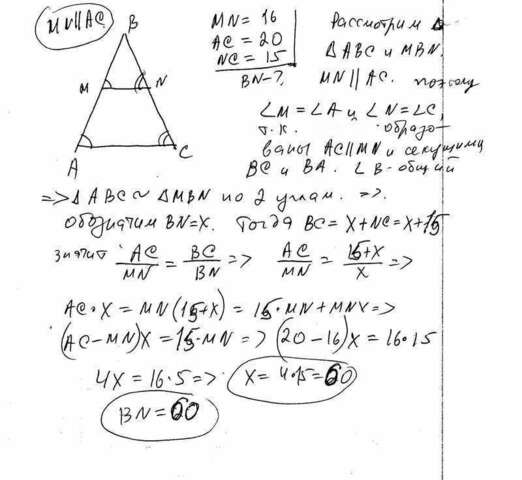 MN||AC
B
M
N
A
C
MN = 16
AC = 20
NC = 15
BN - ?
Рассмотрим Δ
ΔABC и MBN.
MN || AC. поэтому
∠M = ∠A и ∠N = ∠C,
т.к. образо-
ваны AC||MN и секущими
BC и BA. ∠B - общий
=> ΔABC ~ ΔMBN по 2 углам. =>.
обозначим BN = X. Тогда BC = X + NC = X + 15
значит AC/MN = BC/BN => AC/MN = 15+X/X =>
AC·X = MN(15+X) = 15·MN + MNX =>
(AC-MN)X = 15·MN => (20-16)X = 16·15
4X = 16·5 => X = 4·15 = 60
BN = 60